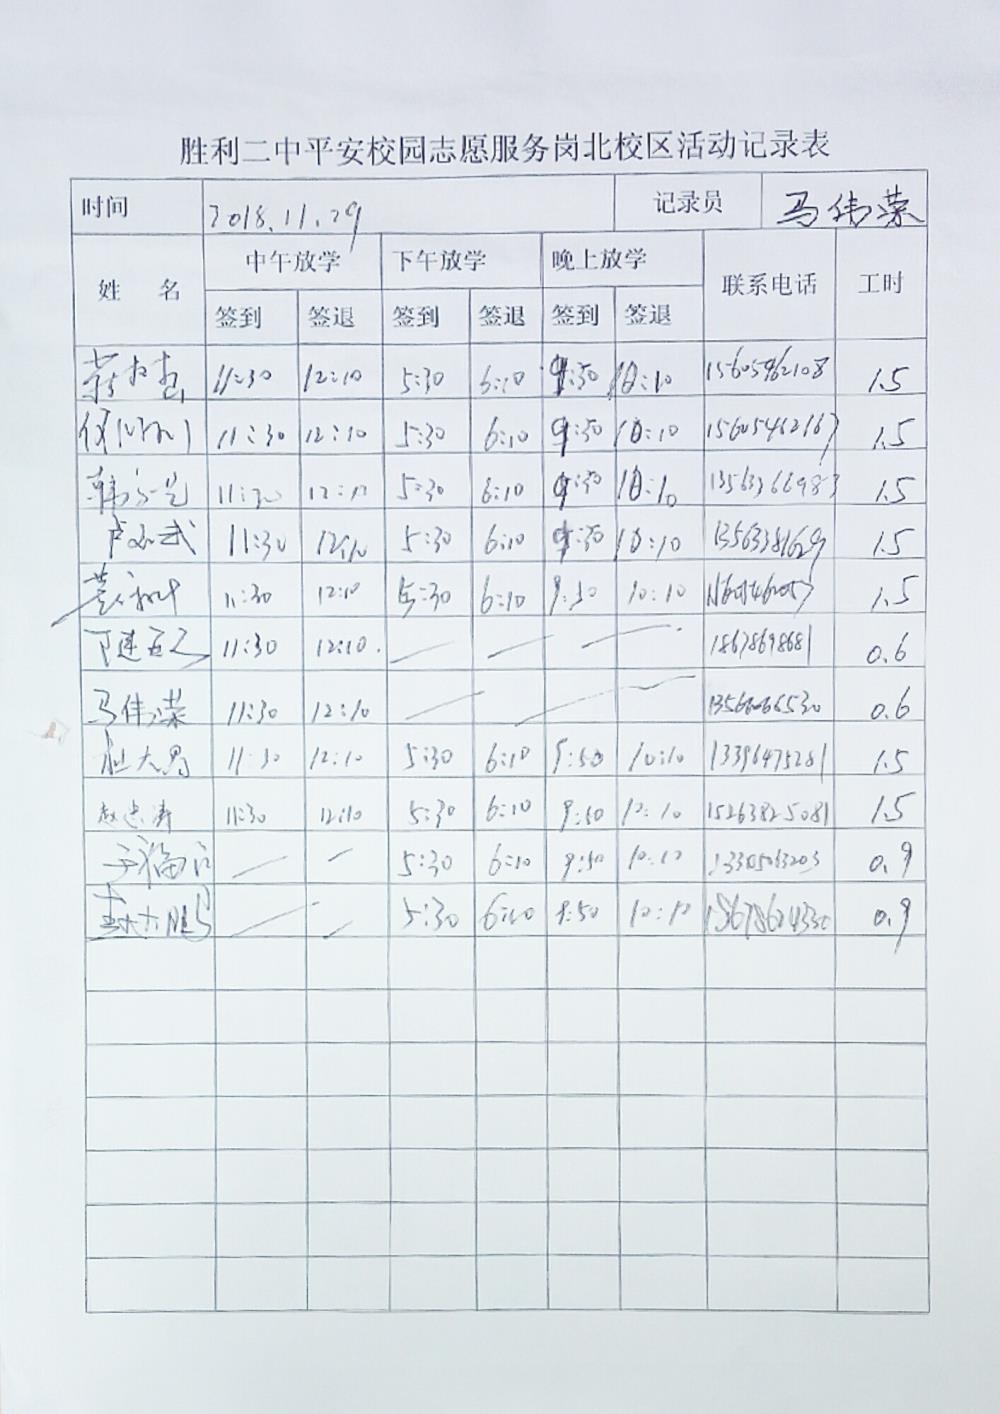 胜利二中平安校园志愿服务岗北校区活动记录表
时间 2018.11.29 记录员 马伟荣
姓 名 中午放学 下午放学 晚上放学 联系电话 工时
签到 签退 签到 签退 签到 签退
11:30 12:10 5:30 6:10 9:50 10:10 15605462108 1.5
11:30 12:10 5:30 6:10 9:50 10:10 15605462167 1.5
11:30 12:10 5:30 6:10 9:50 10:10 13563366983 1.5
11:30 12:10 5:30 6:10 9:50 10:10 13563381629 1.5
11:30 12:10 5:30 6:10 9:50 10:10 1.5
11:30 12:10. — — — 18678698681 0.6
马伟荣 11:30 12:10 — — 0.6
杜大勇 11:30 12:10 5:30 6:10 9:50 10:10 13396475281 1.5
赵忠涛 11:30 12:10 5:30 6:10 9:50 10:10 15263825081 1.5
— — 5:30 6:10 9:50 10:10 0.9
— — 5:30 6:10 9:50 10:10 0.9